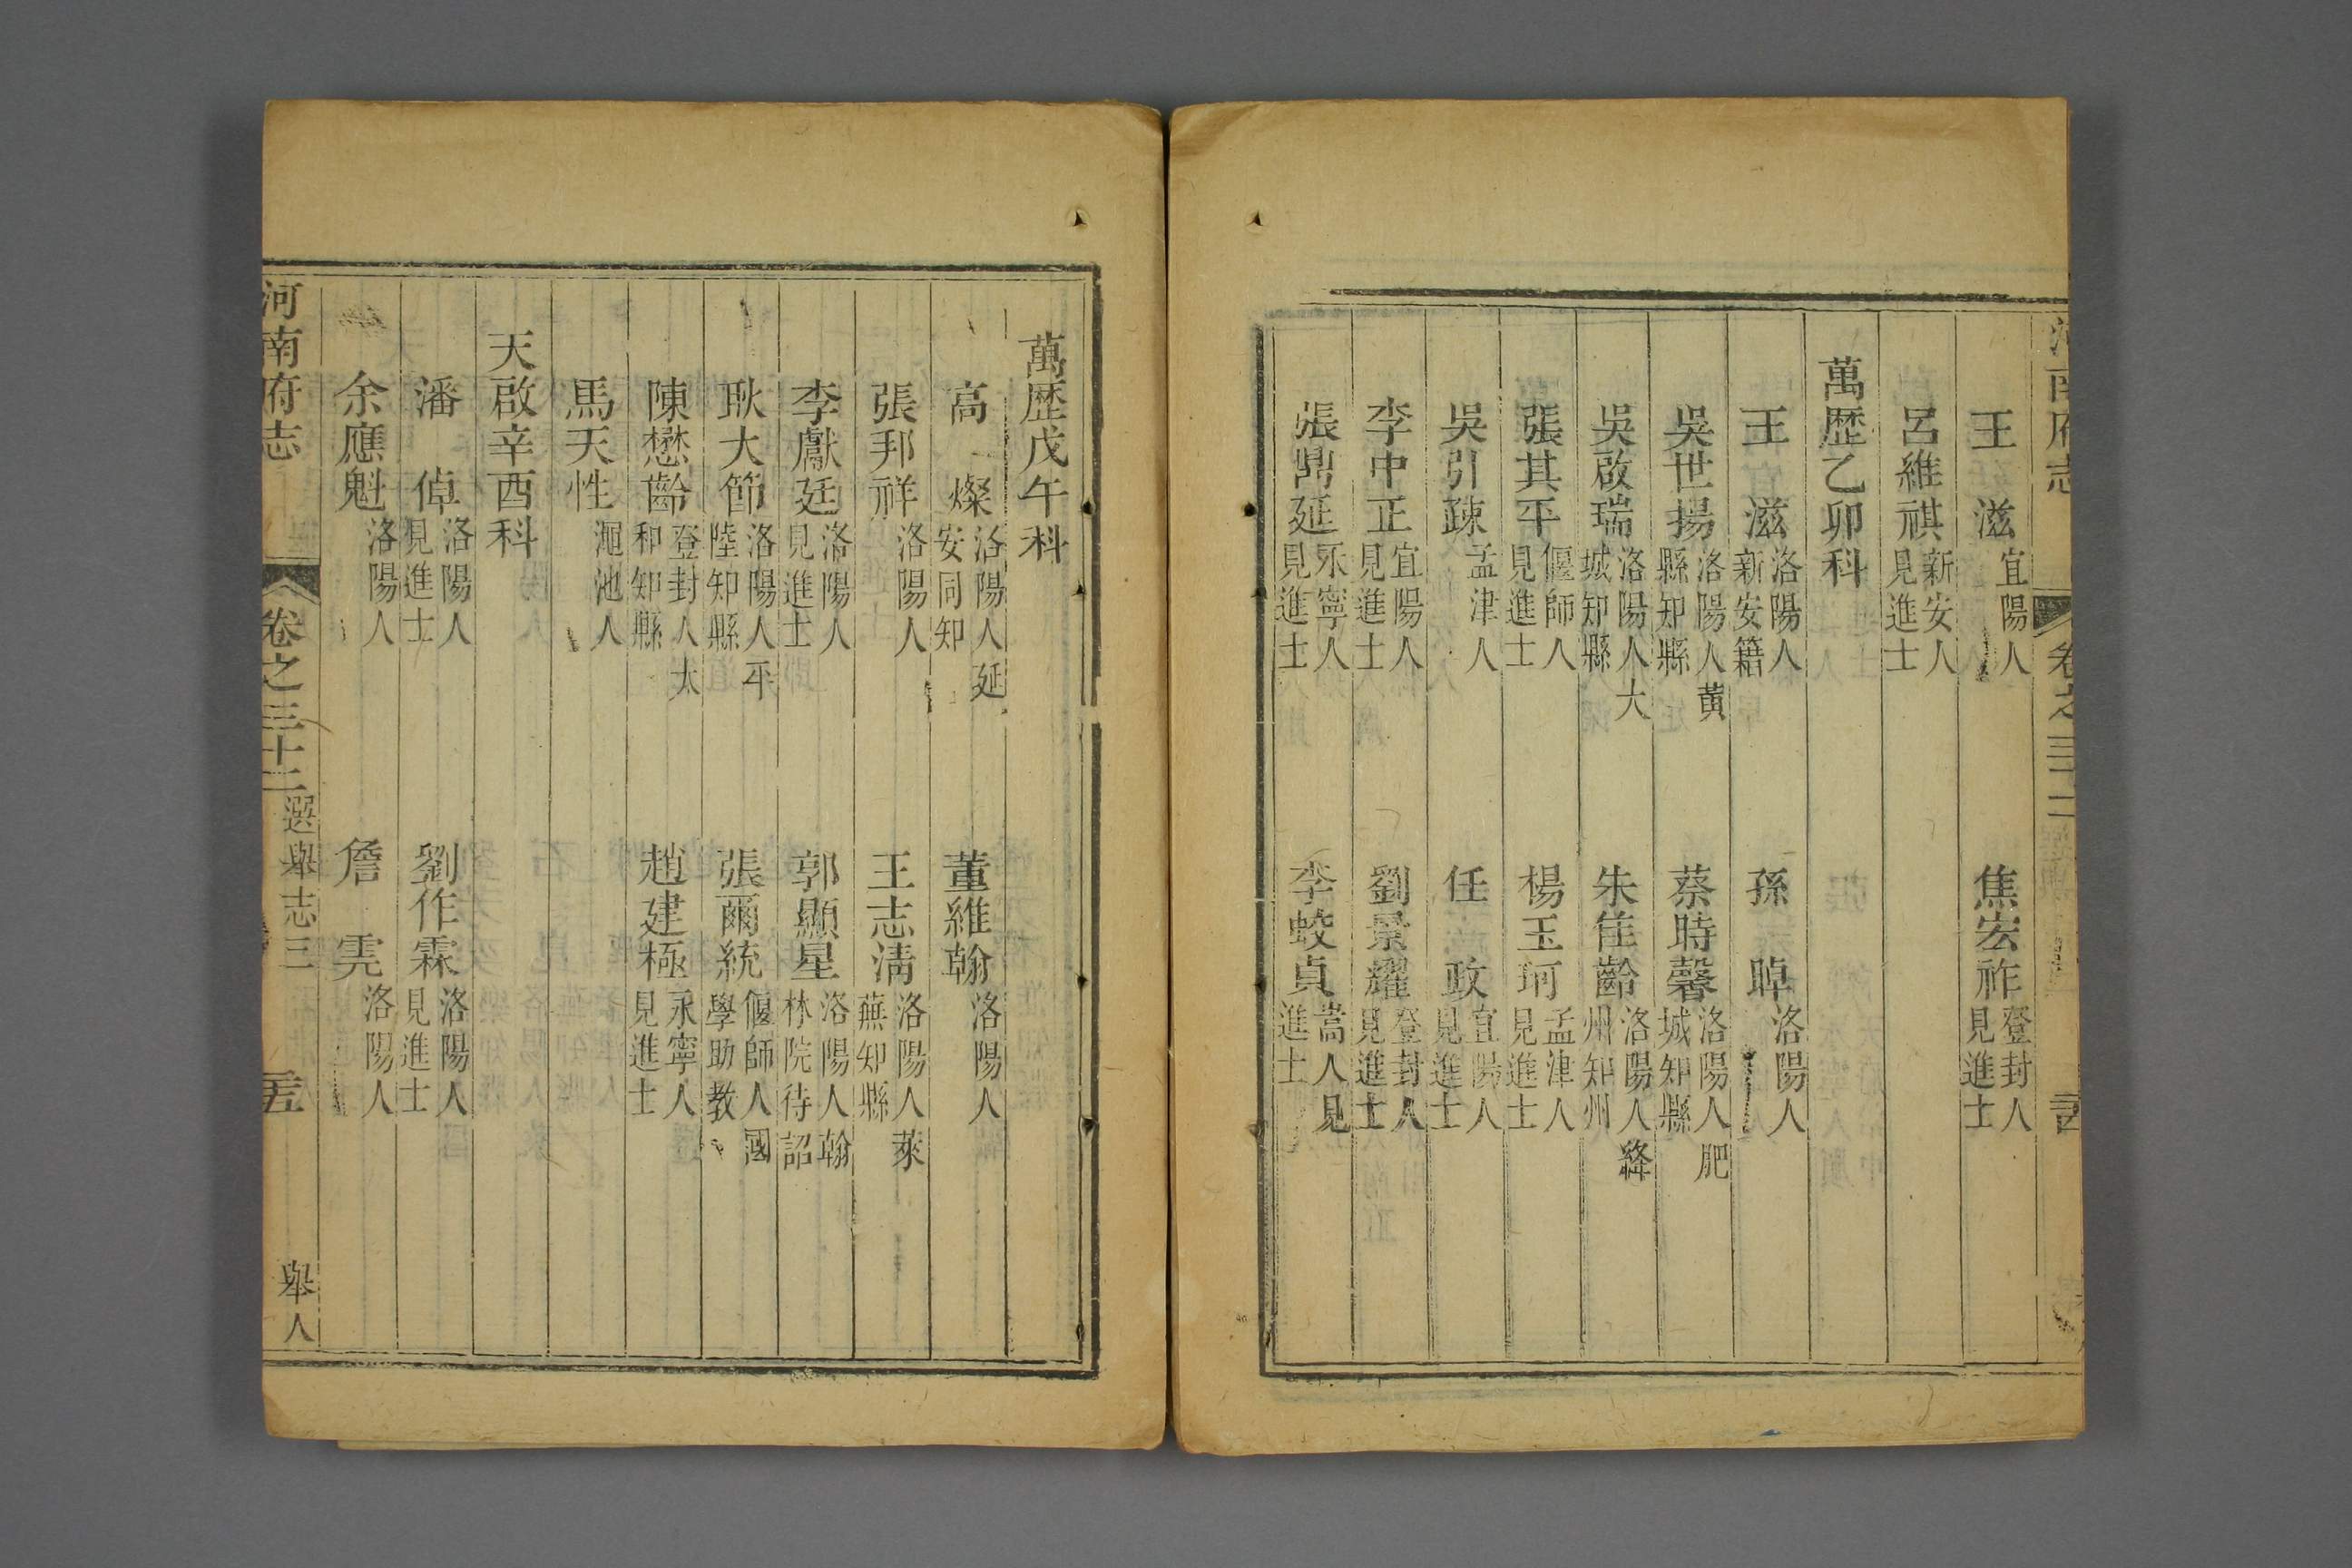 河南府志 卷之三十二
王滋 宜陽人 焦宏祚 登封人見進士
呂維祺 新安人見進士
萬歷乙卯科
王滋 洛陽人新安籍 孫晫 洛陽人
吳世揚 洛陽人黃縣知縣 蔡時馨 洛陽人肥城知縣
吳啟瑞 洛陽人大城知縣 朱隹齡 洛陽人絳州知州
張其平 偃師人見進士 楊玉珂 孟津人見進士
吳引疎 孟津人 任政 宜陽人見進士
李中正 宜陽人見進士 劉景耀 登封人見進士
張鼎延 永寧人見進士 李蛟貞 嵩人見進士
萬歷戊午科
高燦 洛陽人延安同知 董維翰 洛陽人
張邦祥 洛陽人 王志清 洛陽人萊蕪知縣
李獻廷 洛陽人見進士 郭顯星 洛陽人翰林院待詔
耿大節 洛陽人平陸知縣 張爾統 偃師人國學助教
陳懋齡 登封人太和知縣 趙建極 永寧人見進士
馬天性 澠池人
天啟辛酉科
潘倬 洛陽人見進士 劉作霖 洛陽人見進士
余應魁 洛陽人 詹雲 洛陽人
河南府志 卷之三十二 選舉志三 舉人